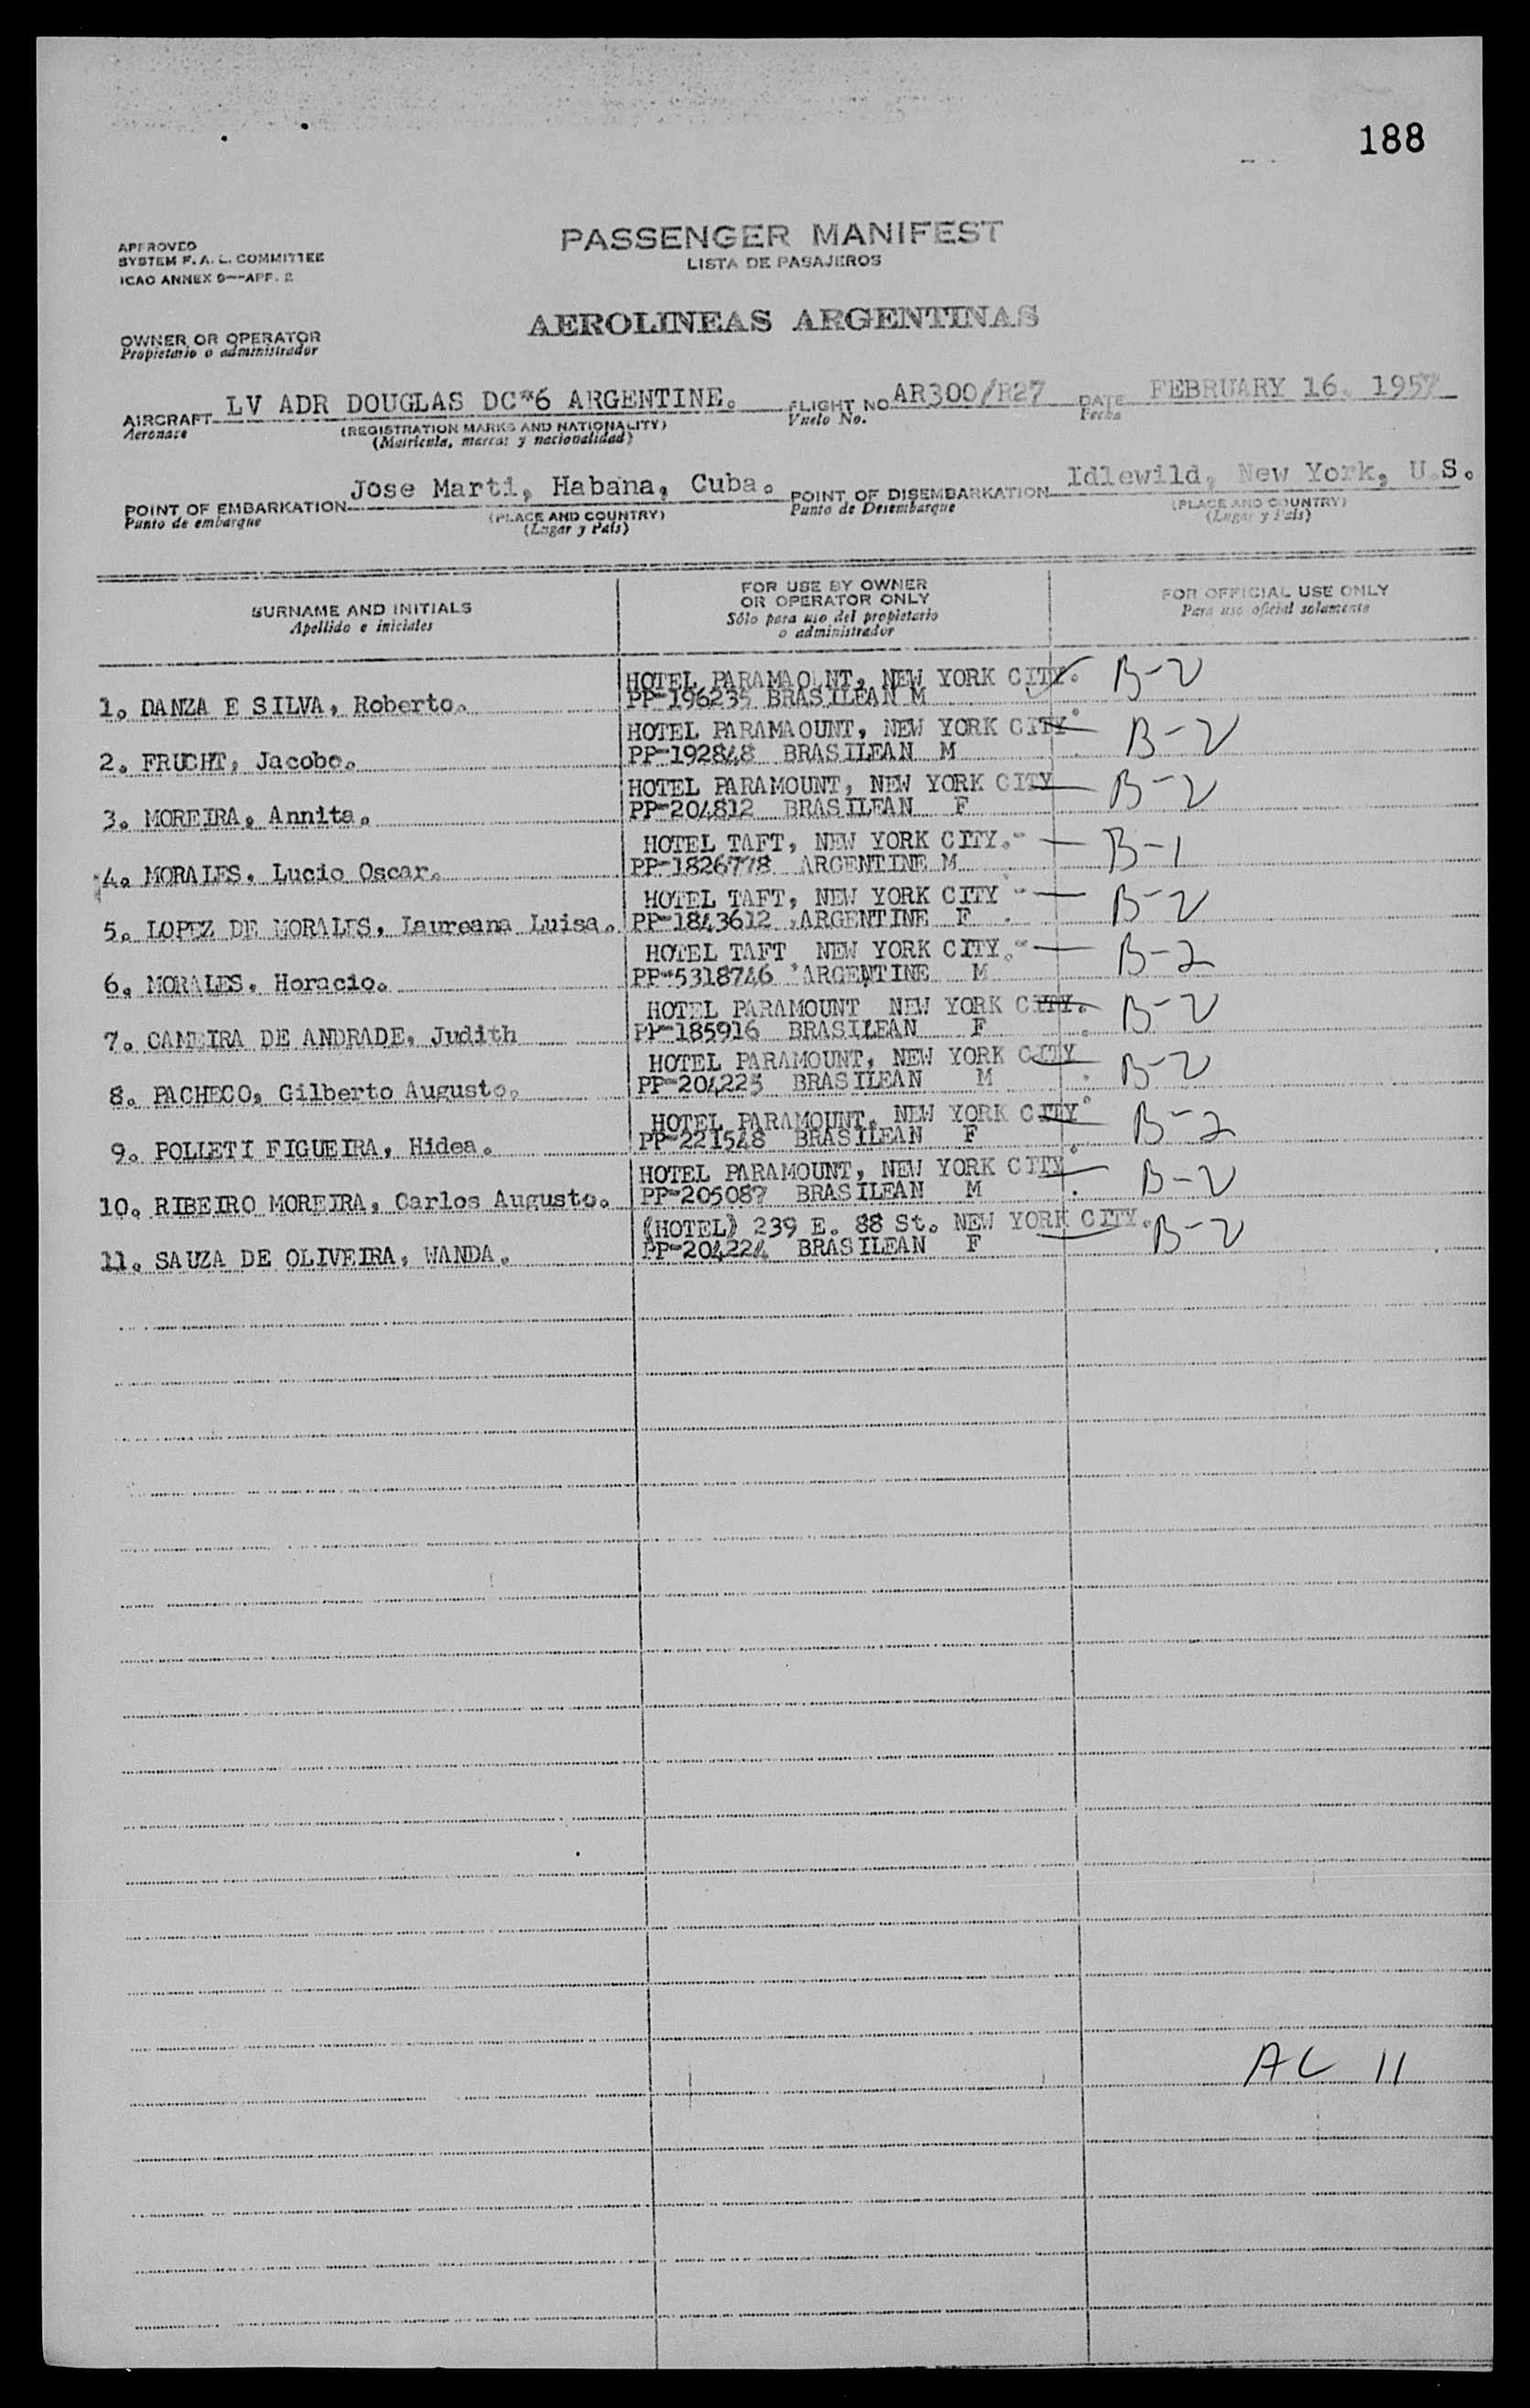 188
APPROVED
SYSTEM F. A. L. COMMITTEE
ICAO ANNEX 9—APP. 2
PASSENGER MANIFEST
LISTA DE PASAJEROS
AEROLINEAS ARGENTINAS
OWNER OR OPERATOR
Propietario o administrador
AIRCRAFT LV ADR DOUGLAS DC-6 ARGENTINE. FLIGHT NO AR300/R27 DATE FEBRUARY 16. 1957
Aeronave (REGISTRATION MARKS AND NATIONALITY) Vuelo No. Fecha
(Matrícula, marcas y nacionalidad)
POINT OF EMBARKATION Jose Marti, Habana, Cuba. POINT OF DISEMBARKATION Idlewild, New York, U.S.
Punto de embarque (PLACE AND COUNTRY) Punto de Desembarque (PLACE AND COUNTRY)
(Lugar y País) (Lugar y País)
SURNAME AND INITIALS
Apellido e iniciales
FOR USE BY OWNER
OR OPERATOR ONLY
Sólo para uso del propietario
o administrador
FOR OFFICIAL USE ONLY
Para uso oficial solamente
HOTEL PARAMAOUNT, NEW YORK CITY. B-2
1. DANZA E SILVA, Roberto. PP-196235 BRASILEAN M
HOTEL PARAMAOUNT, NEW YORK CITY B-2
2. FRUCHT, Jacobo. PP-192848 BRASILEAN M
HOTEL PARAMOUNT, NEW YORK CITY B-2
3. MOREIRA, Annita. PP-204812 BRASILEAN F
HOTEL TAFT, NEW YORK CITY. B-1
4. MORALES, Lucio Oscar. PP-1826778 ARGENTINE M
HOTEL TAFT, NEW YORK CITY B-2
5. LOPEZ DE MORALES, Laureana Luisa. PP-1843612 ARGENTINE F
HOTEL TAFT NEW YORK CITY. B-2
6. MORALES, Horacio. PP-5318746 ARGENTINE M
HOTEL PARAMOUNT NEW YORK CITY. B-2
7. CAMEIRA DE ANDRADE, Judith PP-185916 BRASILEAN F
HOTEL PARAMOUNT, NEW YORK CITY B-2
8. PACHECO, Gilberto Augusto. PP-204225 BRASILEAN M
HOTEL PARAMOUNT, NEW YORK CITY B-2
9. POLLETI FIGUEIRA, Hidea. PP-221548 BRASILEAN F
HOTEL PARAMOUNT, NEW YORK CITY B-2
10. RIBEIRO MOREIRA, Carlos Augusto. PP-205087 BRASILEAN M
(HOTEL) 239 E. 88 St. NEW YORK CITY. B-2
11. SAUZA DE OLIVEIRA, WANDA. PP-204224 BRASILEAN F
AC 11